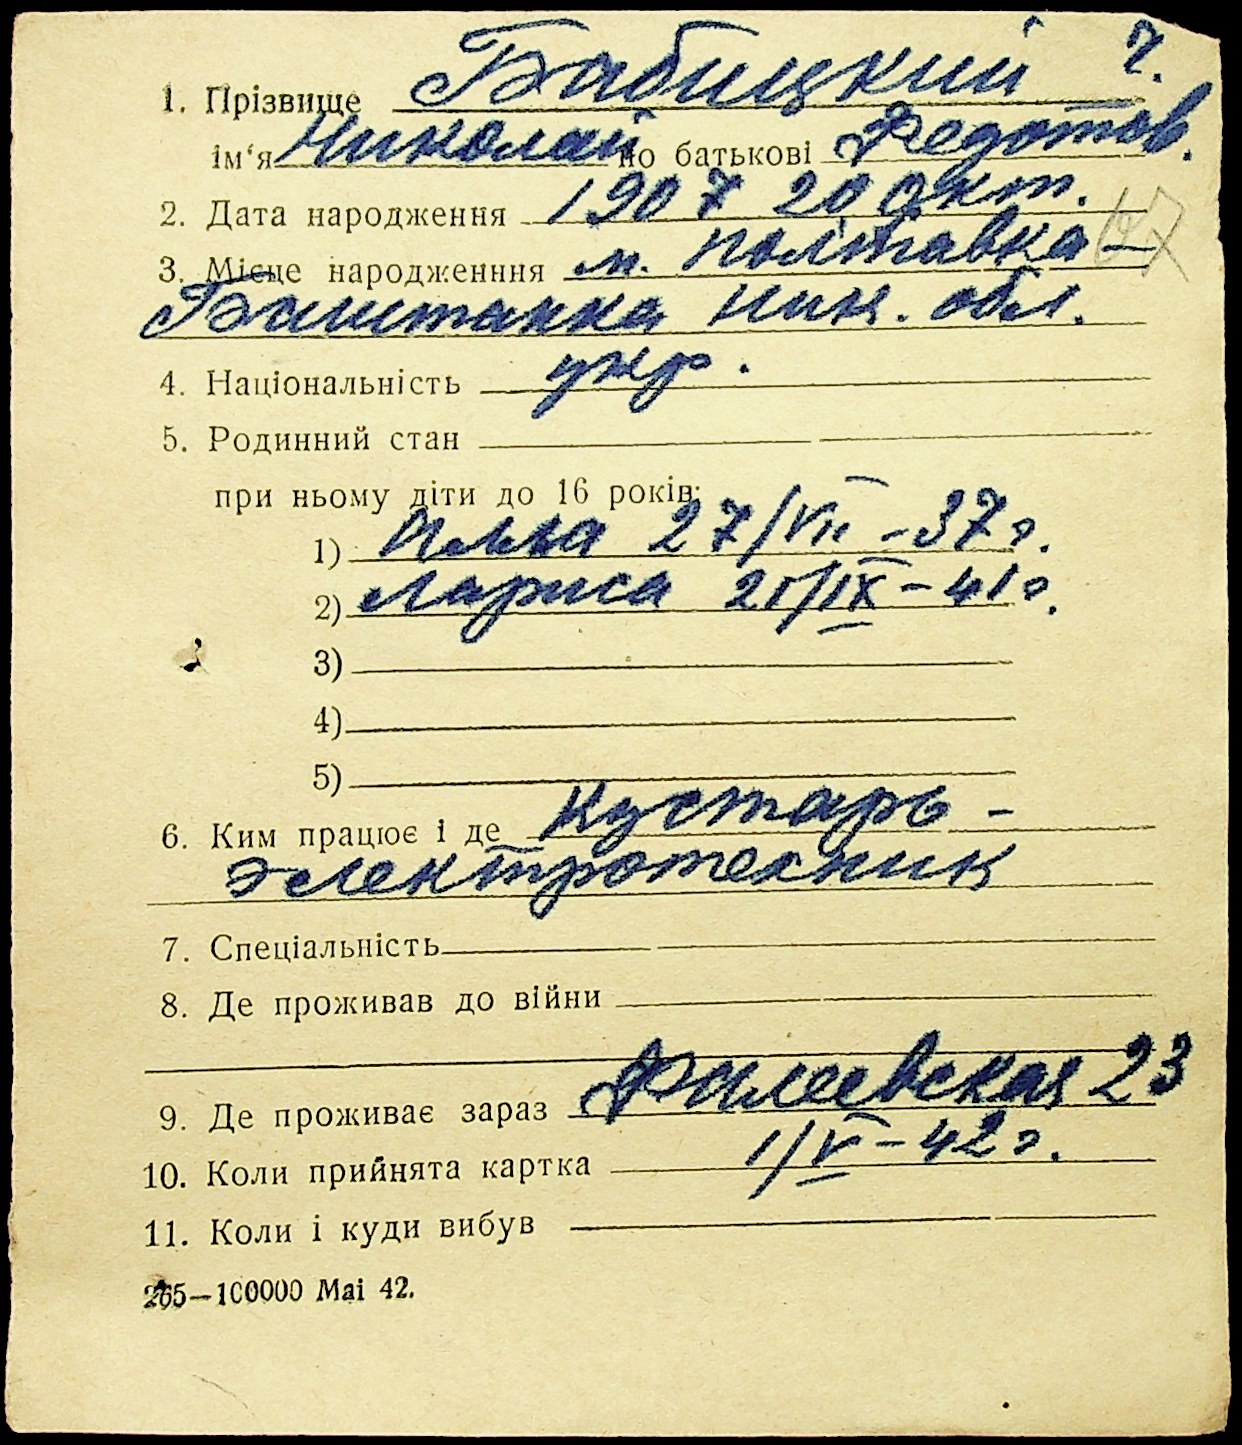 1. Прізвище Бабицкий ч.
ім‘я Николай по батькові Федотов.
2. Дата народження 1907 20 окт.
3. Місце народженння м. Полтавка —
Баштанка Ник. обл.
4. Національність укр.
5. Родинний стан
при ньому діти до 16 років:
1) Илья 27/VII – 37 г.
2) Лариса 21/IX – 41 г.
3)
4)
5)
6. Ким працює і де Кустарь –
электротехник
7. Спеціальність
8. Де проживав до війни
9. Де проживає зараз Фалеевская 23
10. Коли прийнята картка 1/V – 42 г.
11. Коли і куди вибув
265—100000 Mai 42.